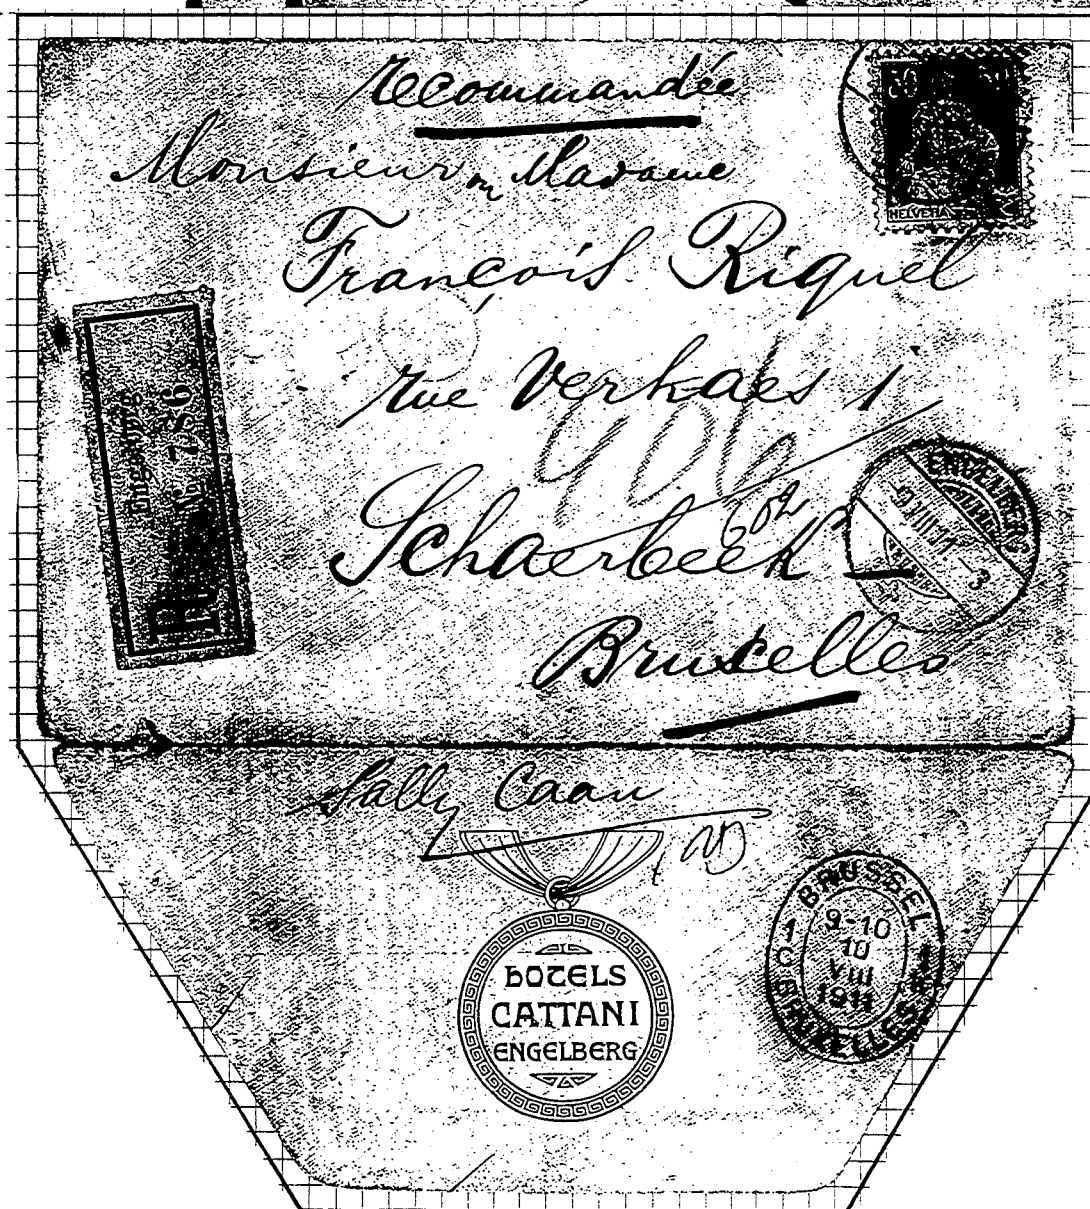 recommandée
Monsieur ou Madame
François Riquel
rue Verhaes 1
906
602
Schaerbeek
Bruxelles
50
HELVETIA
Engelberg
R No 786
ENGELBERG
Sally Caan
HOTELS
CATTANI
ENGELBERG
BRUSSEL
9-10
10
VIII
1911
BRUXELLES
1
C